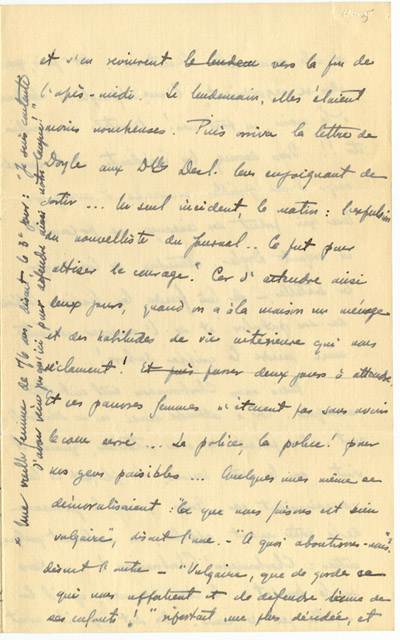 et s'en revinrent le lendem vers la fin de
l'après-midi. Le lendemain, elles étaient
moins nombreuses. Puis arriva la lettre de
Doyle aux Dlles Desl. leur enjoignant de
sortir... Un seul incident, le matin : l'expulsion
du nouvelliste du Journal.. Ce fut pour
attiser le courage." Car d'attendre ainsi
deux jours, quand on a à la maison un ménage
et des habitudes de vie intérieure qui vous
réclament! Et puis passer deux jours à attendre.
Et ces pauvres femmes n'étaient pas sans avoir
le coeur serré... La police, la police! pour
des gens paisibles... Quelques unes même se
démoralisaient : "Ce que nous faisons est bien
vulgaire", disait l'une. - "A quoi aboutirons-nous?"
disait l'autre - "Vulgaire, que de garder ce
qui nous appartient et de défendre l'âme de
ses enfants!" ripostait une plus décidée, et
x Une vieille femme de 76 ans, disait le 3e jour : "Je suis contente
d'être venue jusqu'ici pour défendre ainsi notre langue!"